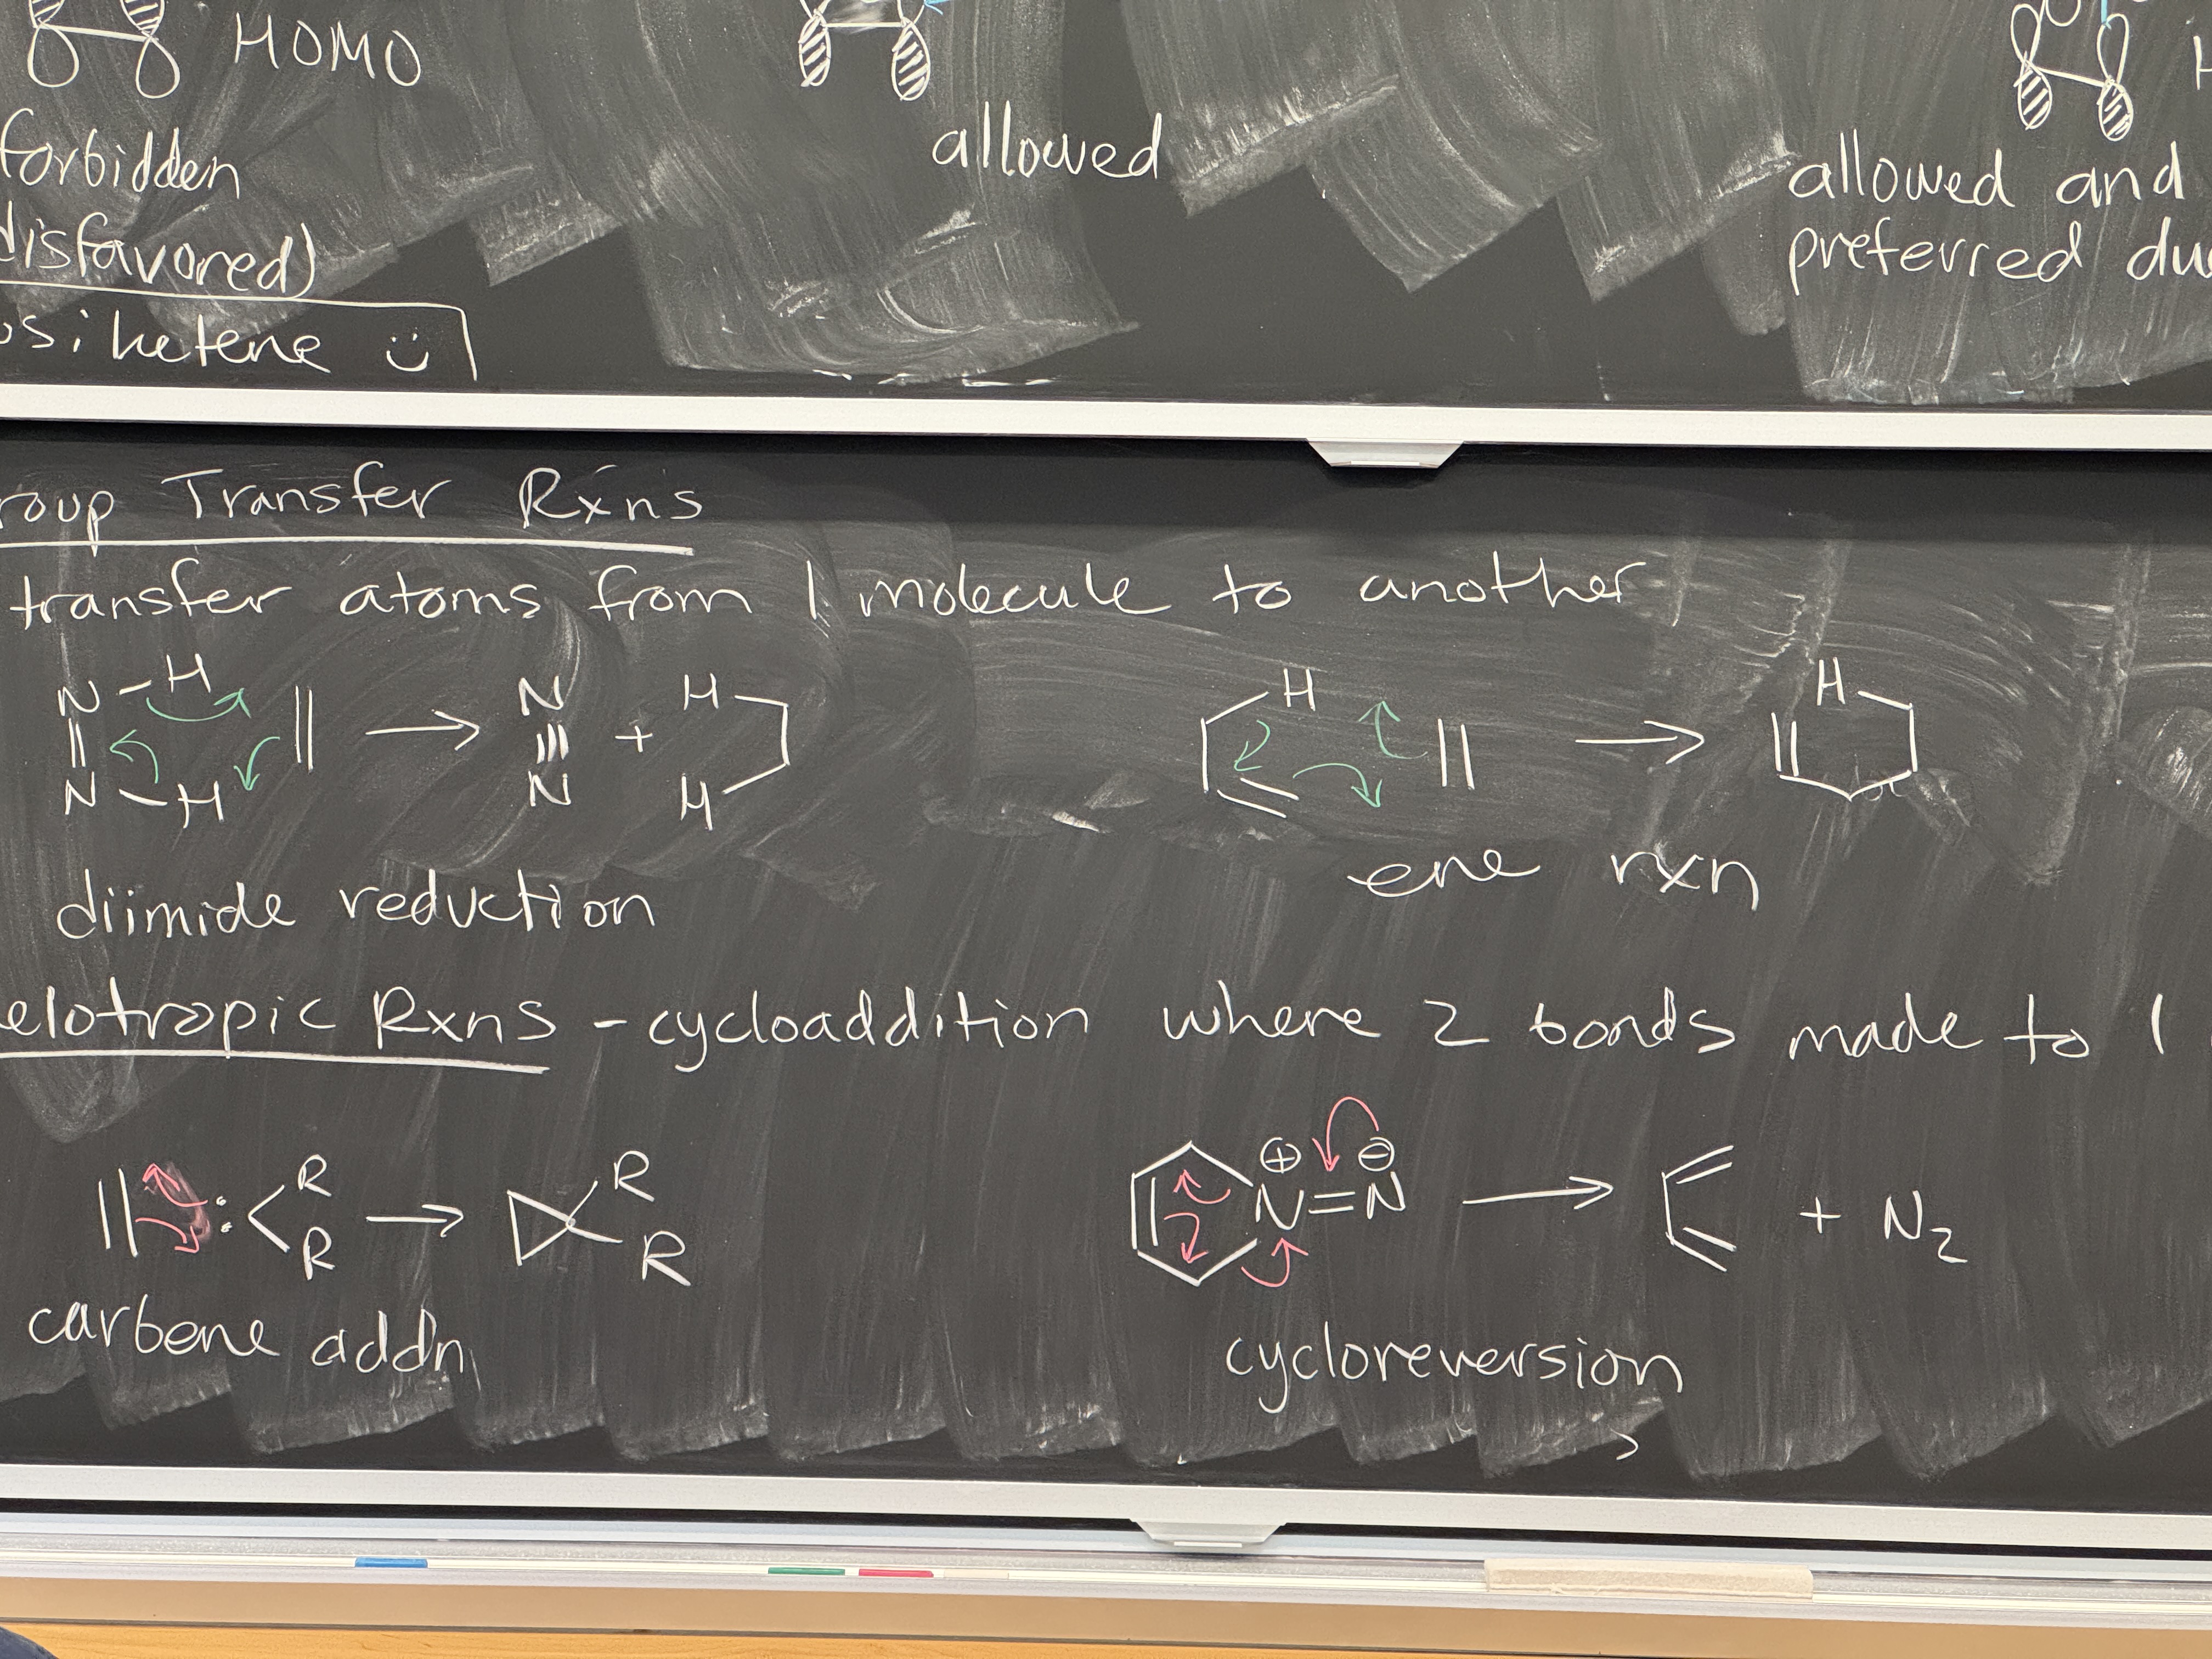 HOMO
forbidden
disfavored)
allowed
allowed and
preferred du
ketene :)
roup Transfer Rxns
transfer atoms from 1 molecule to another
N-H
N-H
N
+
N
H
H
H
H
diimide reduction
ene rxn
elotropic Rxns - cycloaddition where 2 bonds made to 1
: R
R
R
R
⊕ ⊖
N=N
+ N2
carbene addn
cycloreversion